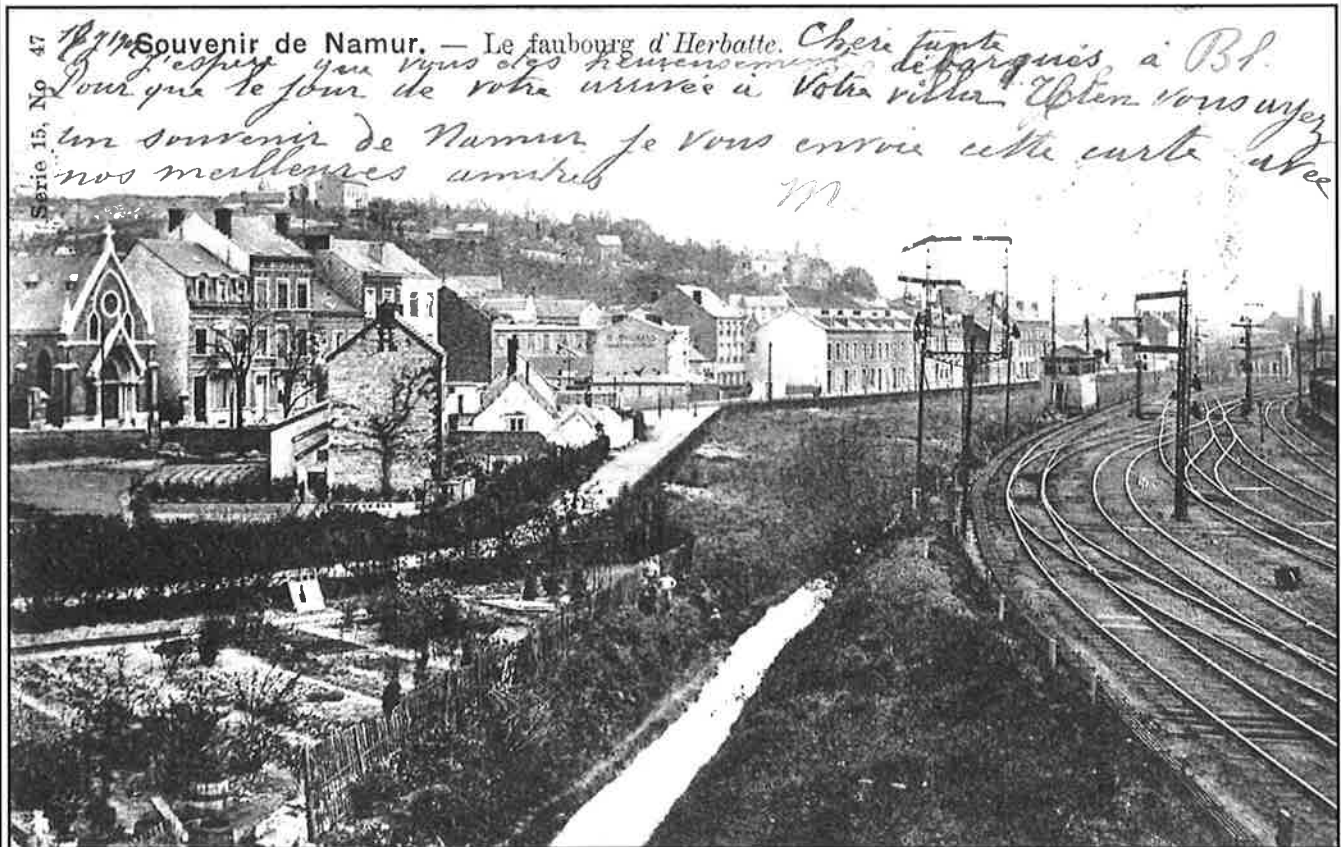 Souvenir de Namur. — Le faubourg d'Herbatte. Chère tante
J'espère que vous êtes heureusement débarqués à Bl.
Pour que le jour de votre arrivée à votre villa vous ayez
un souvenir de Namur je vous envoie cette carte avec
nos meilleures amitiés
M
Serie 15, No 47